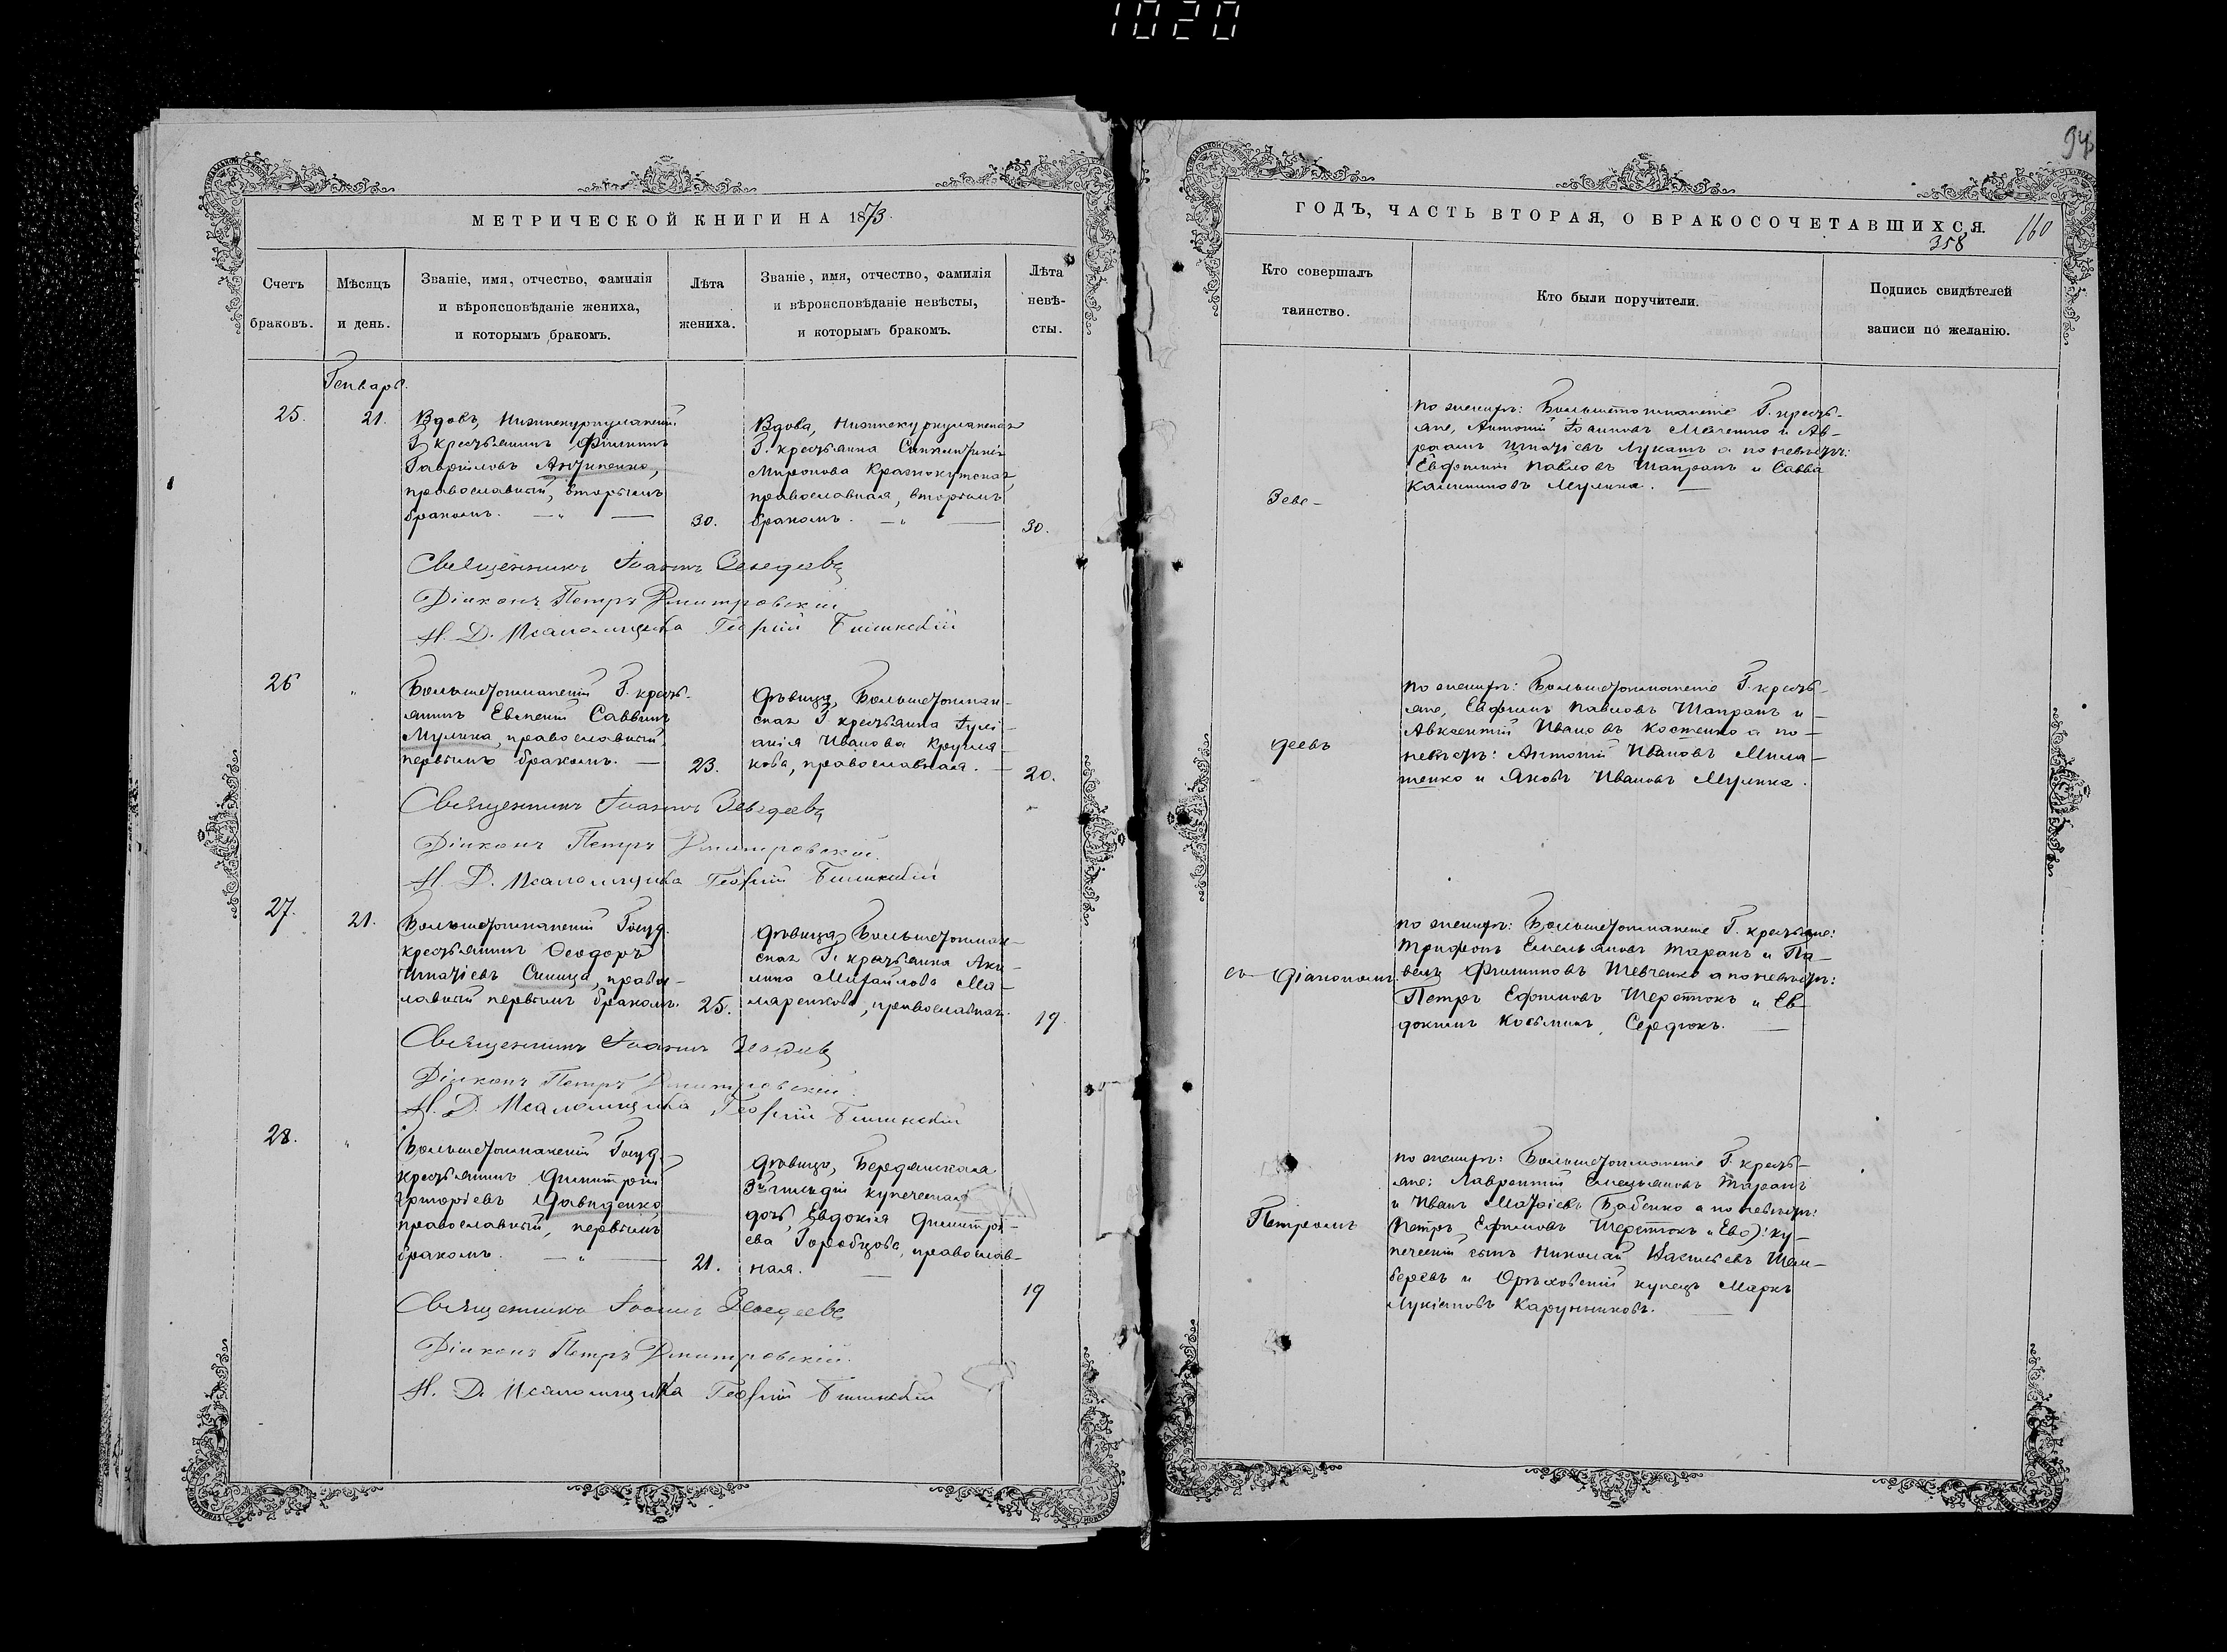 1020
МЕТРИЧЕСКОЙ КНИГИ НА 1873.
Счетъ браковъ.
Мѣсяцъ и день.
Званіе, имя, отчество, фамилія
и вѣроисповѣданіе жениха,
и которымъ бракомъ.
Лѣта жениха.
Званіе, имя, отчество, фамилія
и вѣроисповѣданіе невѣсты,
и которымъ бракомъ.
Лѣта невѣ-
сты.
Генварь.
25. 21.
Вдовъ, Нижнекуркулакскій
Г. крестьянинъ Филиппъ
Гавриловъ Антипенко,
православный, вторымъ
бракомъ. — „ — 30.
Вдова, Нижнекуркулакская
Г. крестьянка
Миронова Краснокутская,
православная, вторымъ
бракомъ. — „ — 30.
Священникъ Іоаннъ Зеведеевъ
Діаконъ Петръ Дмитровскій
И. Д. Псаломщика Георгій
26 „
Большетокмакскій Г. кресть-
янинъ Евгеній Саввинъ
Мулика, православный,
первымъ бракомъ. — 23.
Дѣвица, Большетокмак-
ская Г. крестьянка Іулі-
анія Иванова Кругля-
кова, православная. — 20.
Священникъ Іоаннъ Зеведеевъ
Діаконъ Петръ Дмитровскій.
И. Д. Псаломщика Георгій
27. 21.
Большетокмакскій Госуд.
крестьянинъ Ѳеодоръ
Игнатіевъ Синица, правос-
лавный первымъ бракомъ. 25.
Дѣвица, Большетокмак-
ская Г. крестьянка Аки-
лина Михайлова Ма-
маренкова, православная. 19.
Священникъ Іоаннъ Зеведеевъ
Діаконъ Петръ Дмитровскій
И. Д. Псаломщика Георгій
28. „
Большетокмакскій Госуд.
крестьянинъ Димитрій
Григоріевъ Давиденко
православный, первымъ
бракомъ. — „ — 21.
Дѣвица, Бердянская
3й гильдіи купеческая
дочь, Евдокія Димитрі-
ева Горобцова, православ-
ная. — 19
Священникъ Іоаннъ Зеведеевъ
Діаконъ Петръ Дмитровскій.
И. Д. Псаломщика Георгій
94
ГОДЪ, ЧАСТЬ ВТОРАЯ, О БРАКОСОЧЕТАВШИХСЯ.
358
160
Кто совершалъ
таинство.
Кто были поручители.
Подпись свидѣтелей
записи по желанію.
Зеве-
по женихѣ: Большетокмакскіе Г. кресть-
яне, Антоній Іоанновъ и Ав-
раамъ Игнатіевъ Лукашъ а по невѣстѣ:
Евфимій Павловъ Шапранъ и Савва
Калинниковъ Мулика. —
деевъ
по женихѣ: Большетокмакскіе Г. кресть-
яне, Евфимъ Павловъ Шапранъ и
Авксентій Ивановъ Костенко а по
невѣстѣ: Антоній Ивановъ Мила-
шенко и Яковъ Ивановъ Мулика.
съ діакономъ
по женихѣ: Большетокмакскіе Г. крестьяне:
Трифонъ Емельяновъ Таранъ и Па-
велъ Филипповъ Шевченко а по невѣстѣ:
Петръ Ефимовъ Шерстюкъ и Ев-
докимъ Косьминъ Середюкъ. —
Петромъ
по женихѣ: Большетокмакскіе Г. кресть-
яне: Лаврентій Емельяновъ Таранъ
и Иванъ Матѳіевъ Бабенко а по невѣстѣ:
Петръ Ефимовъ Шерстюкъ ку-
печескій сынъ Николай Васильевъ Шам-
беревъ и Орѣховскій купецъ Маркъ
Лукіановъ Карунниковъ. —